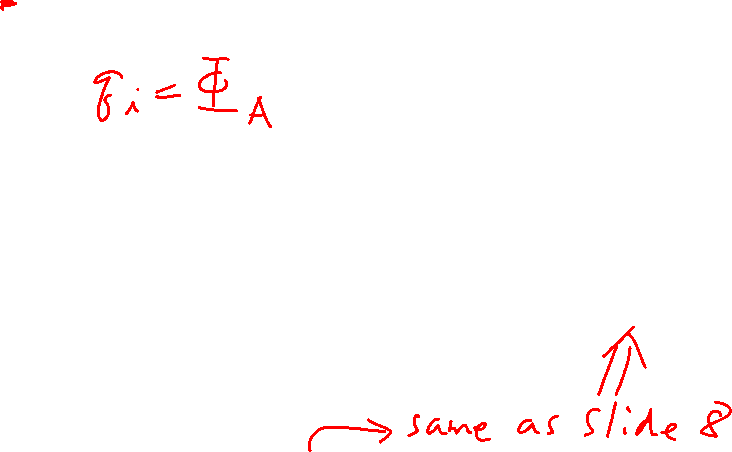 q_i = Φ_A
same as slide 8